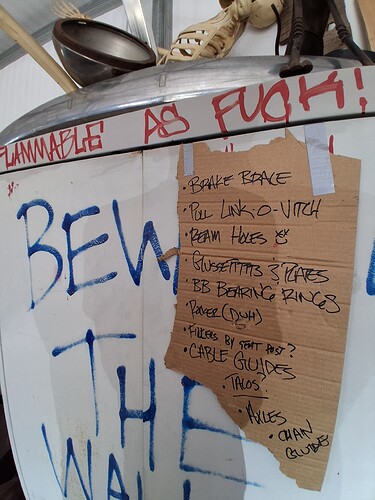 FLAMMABLE AS FUCK!
BEW
THE
WALL
• BRAKE BRACE
• PULL LINK-O-VITCH
• BEAM HOLES
• GUSSETTTTS & PLATES
• BB BEARING RINGS
• POWER (DUH)
• FILLERS BY SEAT POST?
• CABLE GUIDES
• TALOS?
• AXLES
• CHAIN
GUIDES